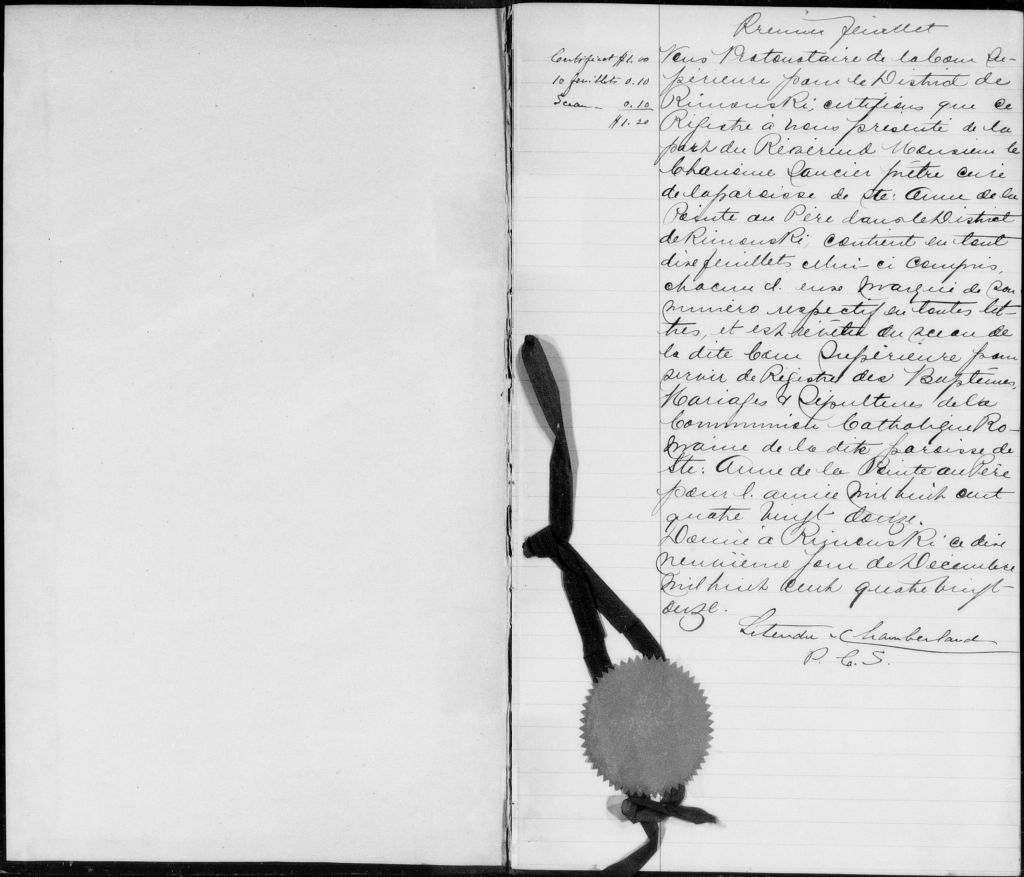 Premier feuillet
Certificat $1.00
10 feuillets 0.10
Sceau 0.10
$1.20
Nous Protonotaire de la Cour Su-
périeure pour le District de
Rimouski, certifions que ce
Régistre à nous présenté de la
part du Révérend Monsieur le
Chanoine Saucier prêtre curé
de la paroisse de Ste: Anne de la
Pointe au Père dans le District
de Rimouski, contient en tout
dixe feuillets, celui ci compris,
chacun d'euxe marqué de son
numéro respectif en toutes let-
tres, et est revêtu du sceau de
la dite Cour Supérieure pour
servir de Régistre des Baptêmes,
Mariages & Sépultures de la
Communion Catholique Ro-
maine de la dite paroisse de
Ste: Anne de la Pointe au Père
pour l'année mil huit cent
quatre vingt douze.
Donné à Rimouski ce dix
neuvième jour de Décembre
mil huit cent quatre vingt
onze.
Letendre & Chamberland
P. C. S.